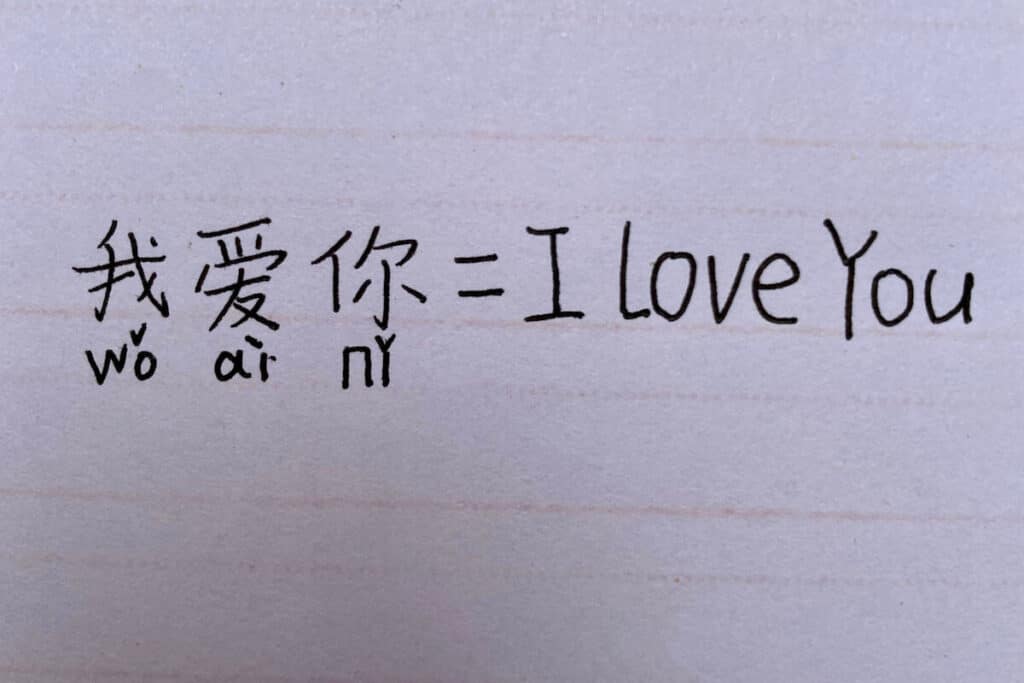 我爱你 = I love You
wǒ ài nǐ